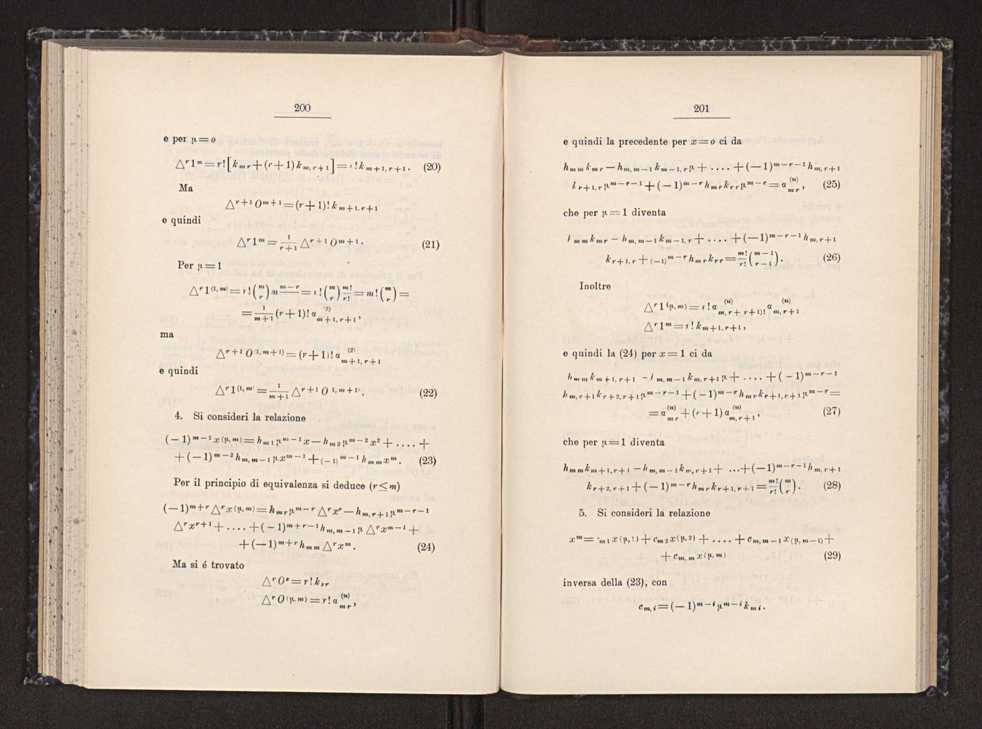 200
e per μ = o
△^r 1^m = r! [k_{mr} + (r+1) k_{m, r+1}] = r! k_{m+1, r+1}. (20)
Ma
△^{r+1} O^{m+1} = (r+1)! k_{m+1, r+1}
e quindi
△^r 1^m = \frac{1}{r+1} △^{r+1} O^{m+1}. (21)
Per μ = 1
△^r 1^{(1, m)} = r! \binom{m}{r} m^{m-r} = r! \binom{m}{r} \frac{m!}{r!} = m! \binom{m}{r} =
= \frac{1}{m+1} (r+1)! a^{(2)}_{m+1, r+1},
ma
△^{r+1} O^{(1, m+1)} = (r+1)! a^{(2)}_{m+1, r+1}
e quindi
△^r 1^{(1, m)} = \frac{1}{m+1} △^{r+1} O^{(1, m+1)}. (22)
4. Si consideri la relazione
(-1)^{m-1} x^{(μ, m)} = h_{m1} μ^{m-1} x - h_{m2} μ^{m-2} x^2 + .... +
+ (-1)^{m-2} h_{m, m-1} μ x^{m-1} + (-1)^{m-1} h_{mm} x^m. (23)
Per il principio di equivalenza si deduce (r ≤ m)
(-1)^{m+r} △^r x^{(μ, m)} = h_{mr} μ^{m-r} △^r x^r - h_{m, r+1} μ^{m-r-1}
△^r x^{r+1} + .... + (-1)^{m+r-1} h_{m, m-1} μ △^r x^{m-1} +
+ (-1)^{m+r} h_{mm} △^r x^m. (24)
Ma si é trovato
△^r O^s = r! k_{sr}
△^r O^{(μ, m)} = r! a^{(u)}_{mr},
201
e quindi la precedente per x = o ci da
h_{mm} k_{mr} - h_{m, m-1} k_{m-1, r} μ + .... + (-1)^{m-r-1} h_{m, r+1}
k_{r+1, r} μ^{m-r-1} + (-1)^{m-r} h_{mr} k_{rr} μ^{m-r} = a^{(u)}_{mr}, (25)
che per μ = 1 diventa
h_{mm} k_{mr} - h_{m, m-1} k_{m-1, r} + .... + (-1)^{m-r-1} h_{m, r+1}
k_{r+1, r} + (-1)^{m-r} h_{mr} k_{rr} = \frac{m!}{r!} \binom{m-1}{r-1}. (26)
Inoltre
△^r 1^{(μ, m)} = r! a^{(u)}_{m, r} + r+1)! a^{(u)}_{m, r+1}
△^r 1^m = r! k_{m+1, r+1},
e quindi la (24) per x = 1 ci da
h_{mm} k_{m+1, r+1} - h_{m, m-1} k_{m, r+1} μ + .... + (-1)^{m-r-1}
h_{m, r+1} k_{r+2, r+1} μ^{m-r-1} + (-1)^{m-r} h_{mr} k_{r+1, r+1} μ^{m-r} =
= a^{(u)}_{mr} + (r+1) a^{(u)}_{m, r+1}, (27)
che per μ = 1 diventa
h_{mm} k_{m+1, r+1} - h_{m, m-1} k_{m, r+1} + ... + (-1)^{m-r-1} h_{m, r+1}
k_{r+2, r+1} + (-1)^{m-r} h_{mr} k_{r+1, r+1} = \frac{m!}{r!} \binom{m}{r}. (28)
5. Si consideri la relazione
x^m = c_{m1} x^{(μ, 1)} + c_{m2} x^{(μ, 2)} + .... + c_{m, m-1} x^{(μ, m-1)} +
+ c_{m, m} x^{(μ, m)} (29)
inversa della (23), con
c_{m, i} = (-1)^{m-i} μ^{m-i} k_{mi}.